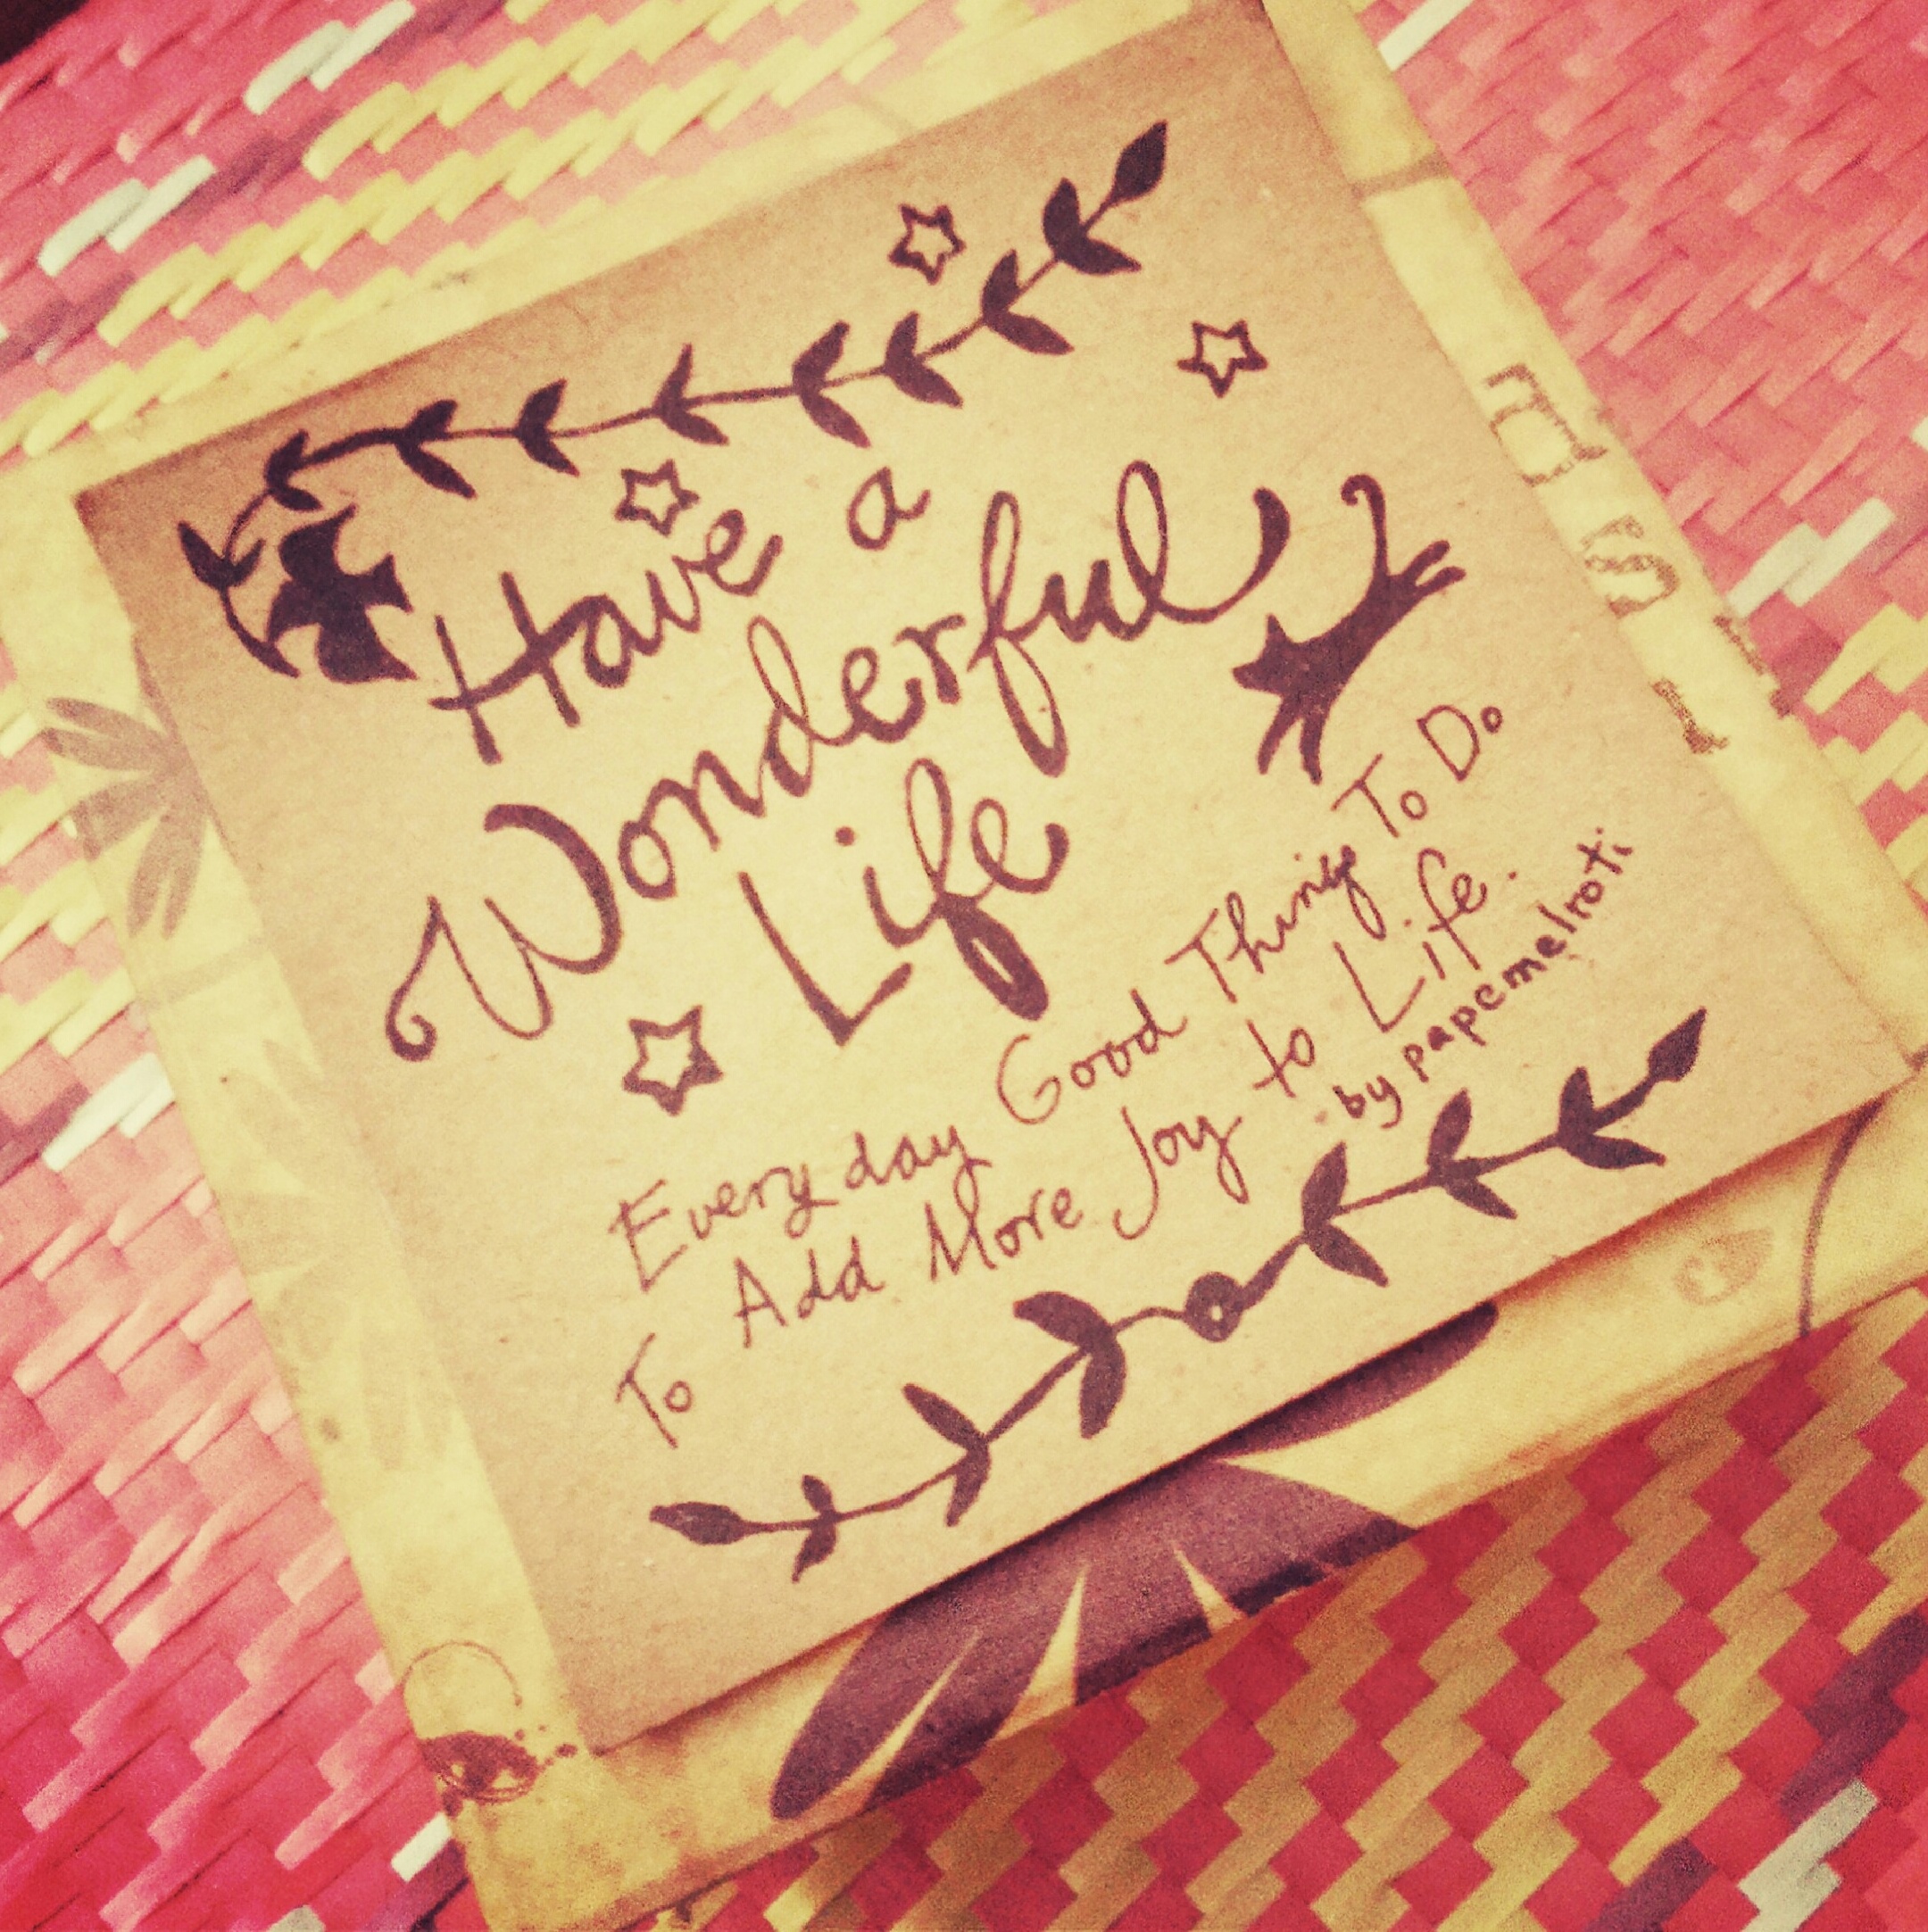 Have a
Wonderful
Life
Everyday Good Things To Do
To Add More Joy to Life.
by papemelroti